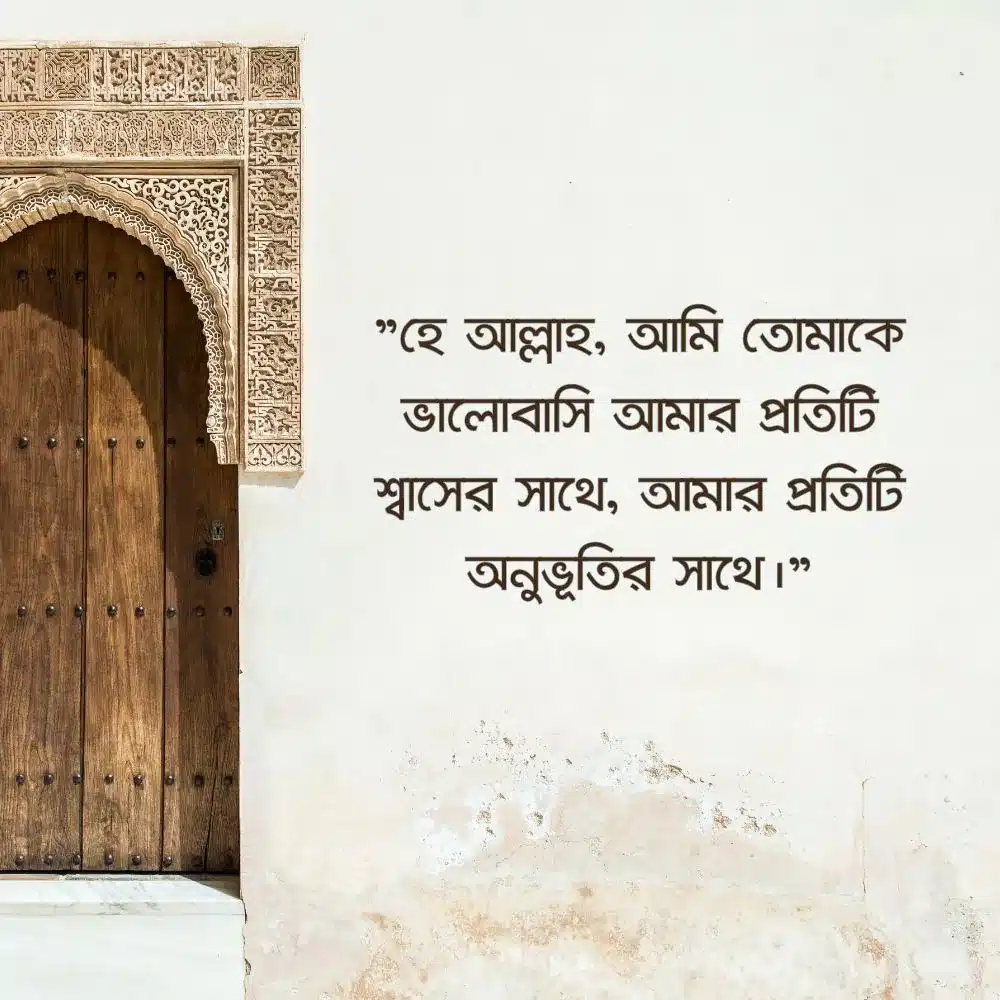 ”হে আল্লাহ, আমি তোমাকে
ভালোবাসি আমার প্রতিটি
শ্বাসের সাথে, আমার প্রতিটি
অনুভূতির সাথে।”